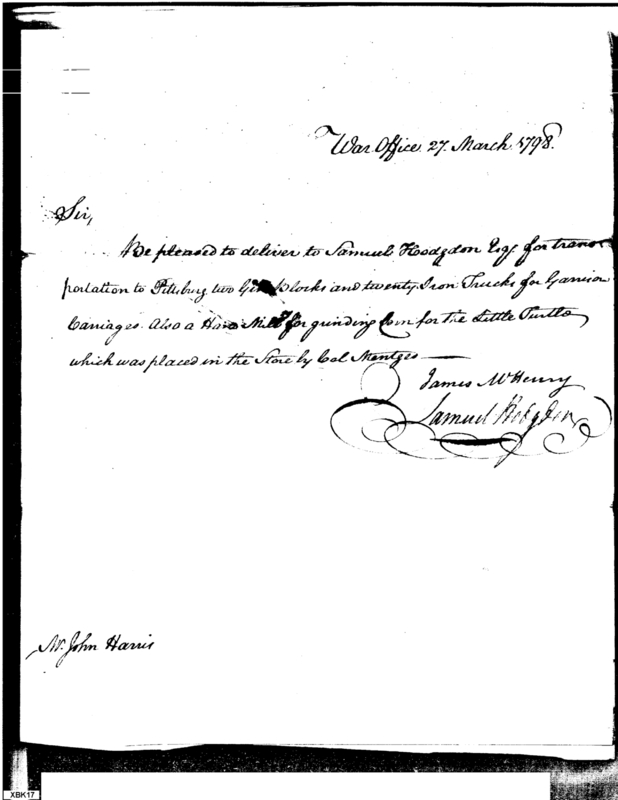 War Office 27. March 1798.
Sir,
Be pleased to deliver to Samuel Hodgdon Esq. for trans-
portation to Pittsburg two Gin Blocks and twenty Iron Trucks for Garrison
Carriages. Also a Hand Mill for grinding Corn for the Little Turtle
which was placed in the Store by Col Mentges —
James McHenry
Samuel Hodgdon
Mr. John Harris
XBK17